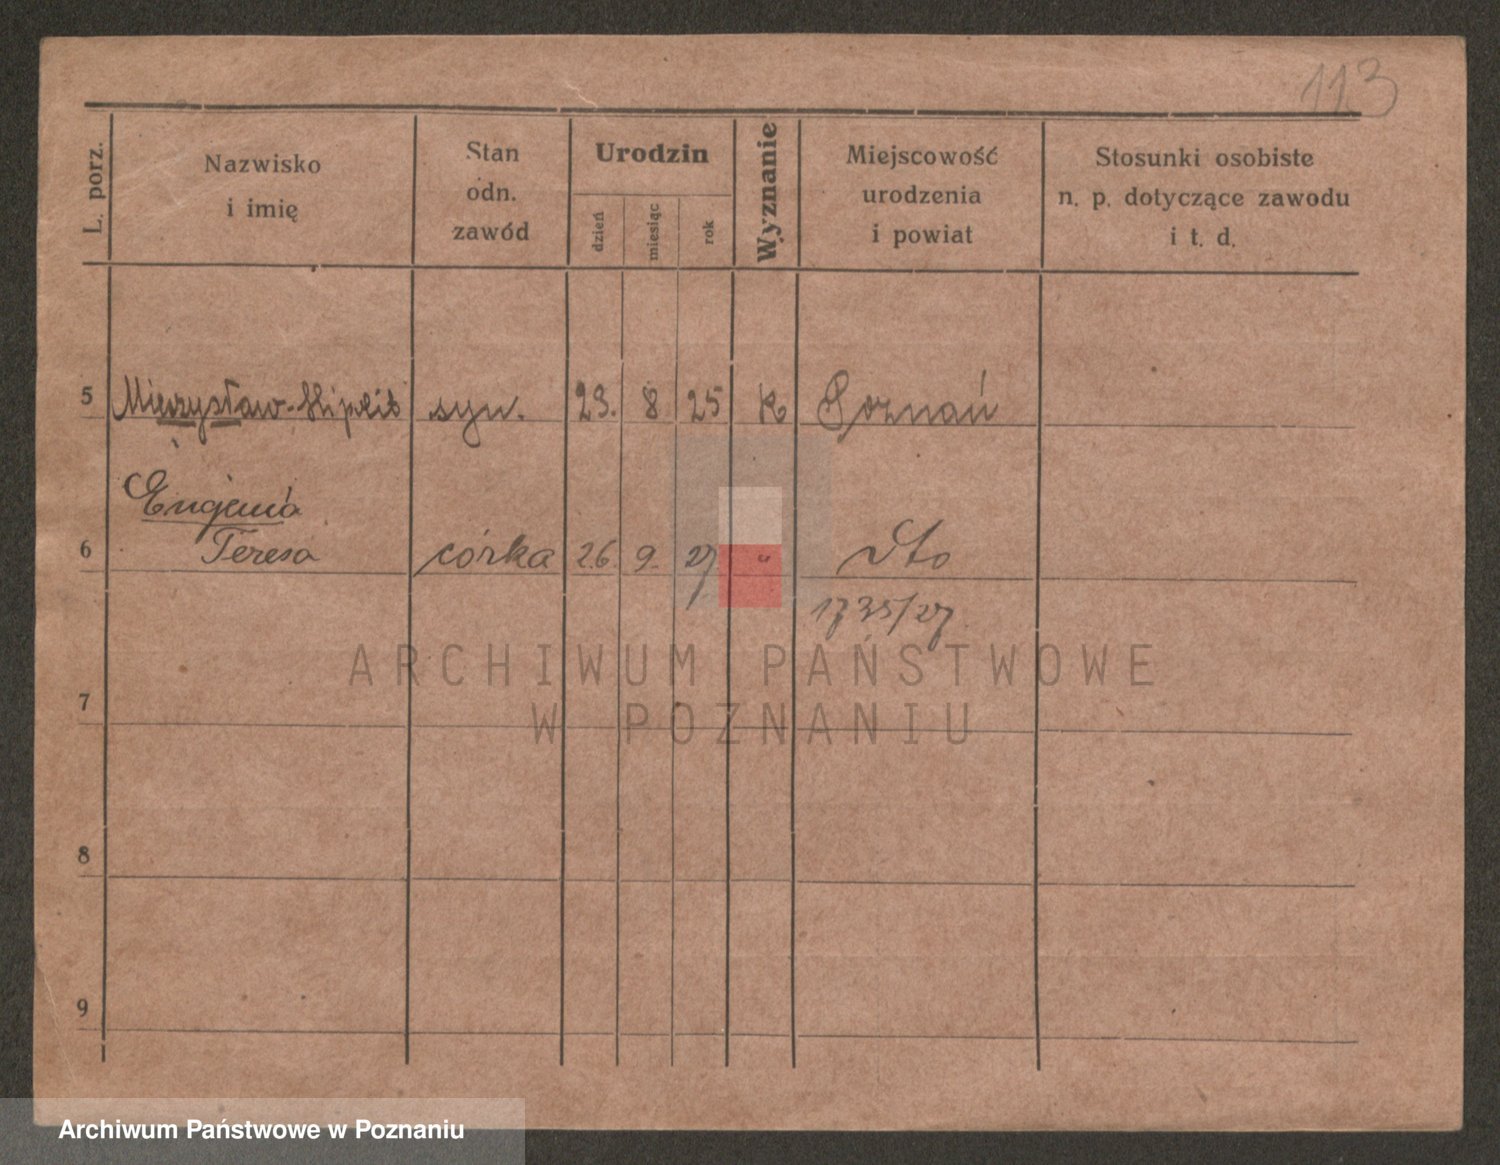 113
L. porz.
Nazwisko
i imię
Stan
odn.
zawód
Urodzin
dzień
miesiąc
rok
Wyznanie
Miejscowość
urodzenia
i powiat
Stosunki osobiste
n. p. dotyczące zawodu
i t. d.
5 Mieczysław-Hipolit syn. 23. 8 25 K Poznań
Eugenia
6 Teresa córka 26. 9. 27 " dto
1735/27
7
8
9
ARCHIWUM PAŃSTWOWE
W POZNANIU
Archiwum Państwowe w Poznaniu